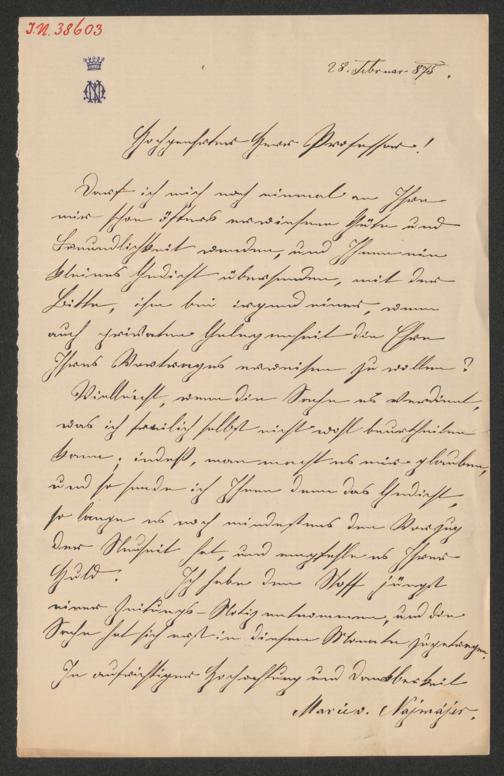 I.N. 38603
28. Februar 875.
Hochgeehrter Herr Professor!
Darf ich mich noch einmal an Ihre
mir schon öfters erwiesene Güte und
Freundlichkeit wenden, und Ihnen ein
kleines Gedicht übersenden, mit der
Bitte, ihm bei irgend einer, wenn
auch privaten Gelegenheit die Ehre
Ihres Vortrages erweisen zu wollen?
Vielleicht, wenn die Sache es verdient,
was ich freilich selbst nicht wohl beurtheilen
kann; indeß, man macht es mir glauben,
und so sende ich Ihnen denn das Gedicht,
so lange es noch mindestens den Vorzug
der Neuheit hat, und empfehle es Ihrer
Huld. Ich habe den Stoff jüngst
einer Zeitungs-Notiz entnommen, und die
Sache hat sich erst in diesem Monate zugetragen.
In aufrichtiger Hochachtung und Dankbarkeit
Marie v. Najmájer.